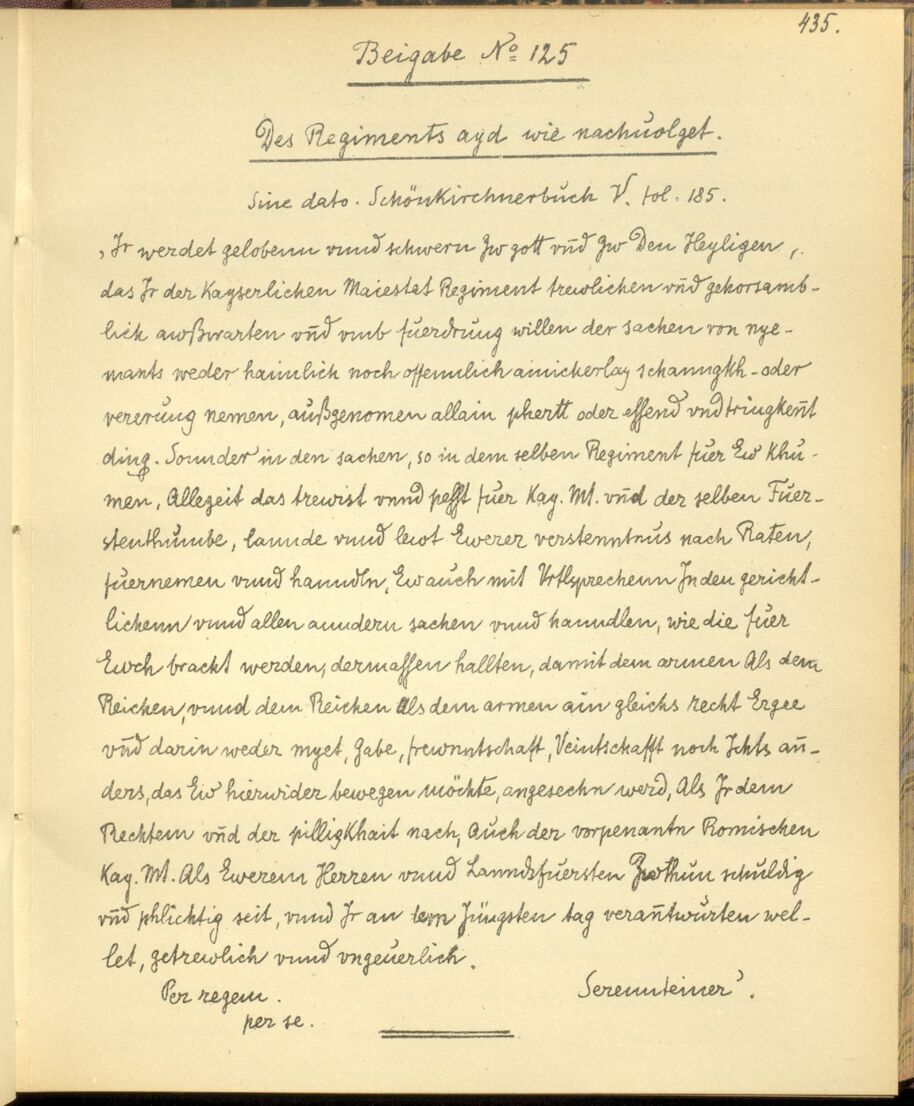 435.
Beigabe No 125
Des Regiments ayd wie nachuolget.
Sine dato. Schönkirchnerbuch V. fol. 185.
„Ir werdet gelobenn vnnd schwern Zw gott vnd Zw Den Heyligen,
das Ir der Kayserlichen Maiestat Regiment trewlichen vnd gehorsamb-
lich außwarten vnd vmb fuerdrung willen der sachen von nye-
mants weder haimlich noch offennlich ainickerlay schanngkh- oder
vererung nemen, außgenomen allain phertt oder essend vnd tringkent
ding. Sonnder in den sachen, so in dem selben Regiment fuer Ew Khu-
men, Allezeit das trewist vnnd pesst fuer Kay. Mt. vnd der selben Fuer-
stenthumbe, lannde vnnd lewt Ewerer verstenntnus nach Raten,
fuernemen vnnd hanndln, Ew auch mit Vrtlsprechenn In den gericht-
lichenn vnnd allen anndern sachen vnnd hanndlen, wie die fuer
Ewch bracht werden, dermassen hallten, damit dem armen Als dem
Reichen, vnnd dem Reichen Als dem armen ain gleichs recht Ergee
vnd darin weder myet, Gabe, frewntschaft, Veintschafft noch Ichts an-
ders, das Ew hierwider bewegen möchte, angesechn werd, Als Ir dem
Rechtem vnd der pilligkhait nach, Auch der vorpenantn Romischen
Kay. Mt. Als Ewerem Herren vnnd Lanndsfuersten Zwthun schuldig
vnd phlichtig seit, vnnd Ir an dem Jüngsten tag verantwurten wel-
let, getrewlich vnnd vngeuerlich.
Per regem. Serennteiner.
per se.